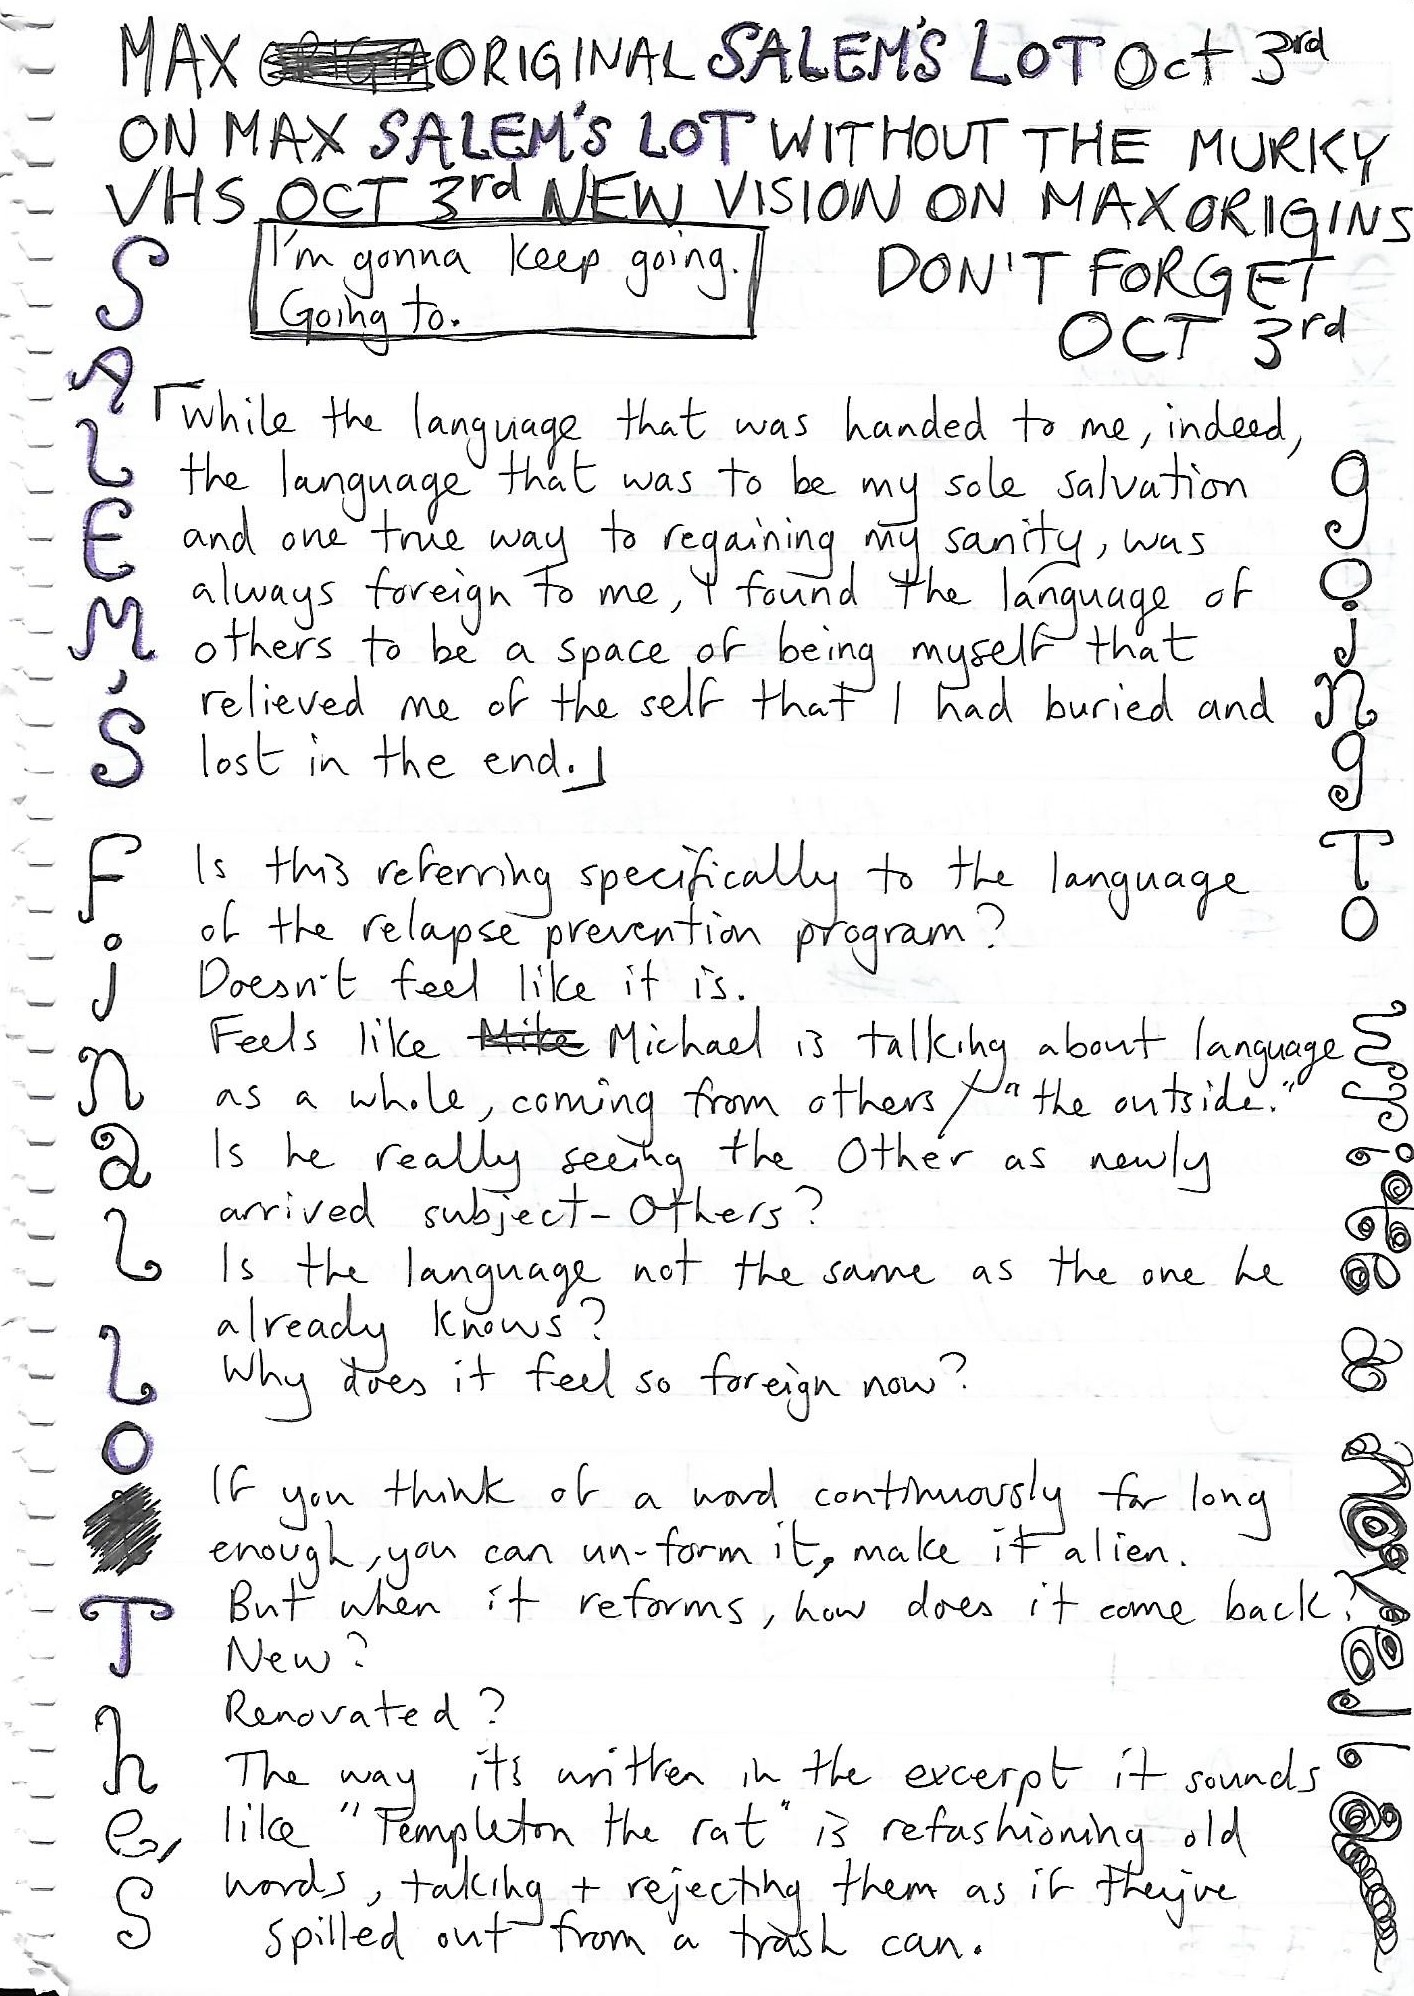 MAX ORIGINAL SALEM'S LOT Oct 3rd
ON MAX SALEM'S LOT WITHOUT THE MURKY
VHS OCT 3rd NEW VISION ON MAX ORIGINS
I'm gonna keep going.
Going to.
DON'T FORGET
OCT 3rd
「While the language that was handed to me, indeed,
the language that was to be my sole salvation
and one true way to regaining my sanity, was
always foreign to me, I found the language of
others to be a space of being myself that
relieved me of the self that I had buried and
lost in the end.」
Is this referring specifically to the language
of the relapse prevention program?
Doesn't feel like it is.
Feels like Mike Michael is talking about language
as a whole, coming from others / "the outside."
Is he really seeing the Other as newly
arrived subject-Others?
Is the language not the same as the one he
already knows?
Why does it feel so foreign now?
If you think of a word continuously for long
enough, you can un-form it, make it alien.
But when it reforms, how does it come back?
New?
Renovated?
The way it's written in the excerpt it sounds
like "Templeton the rat" is refashioning old
words, taking + rejecting them as if they've
spilled out from a trash can.
SALEM'S Final LOT he's
going To